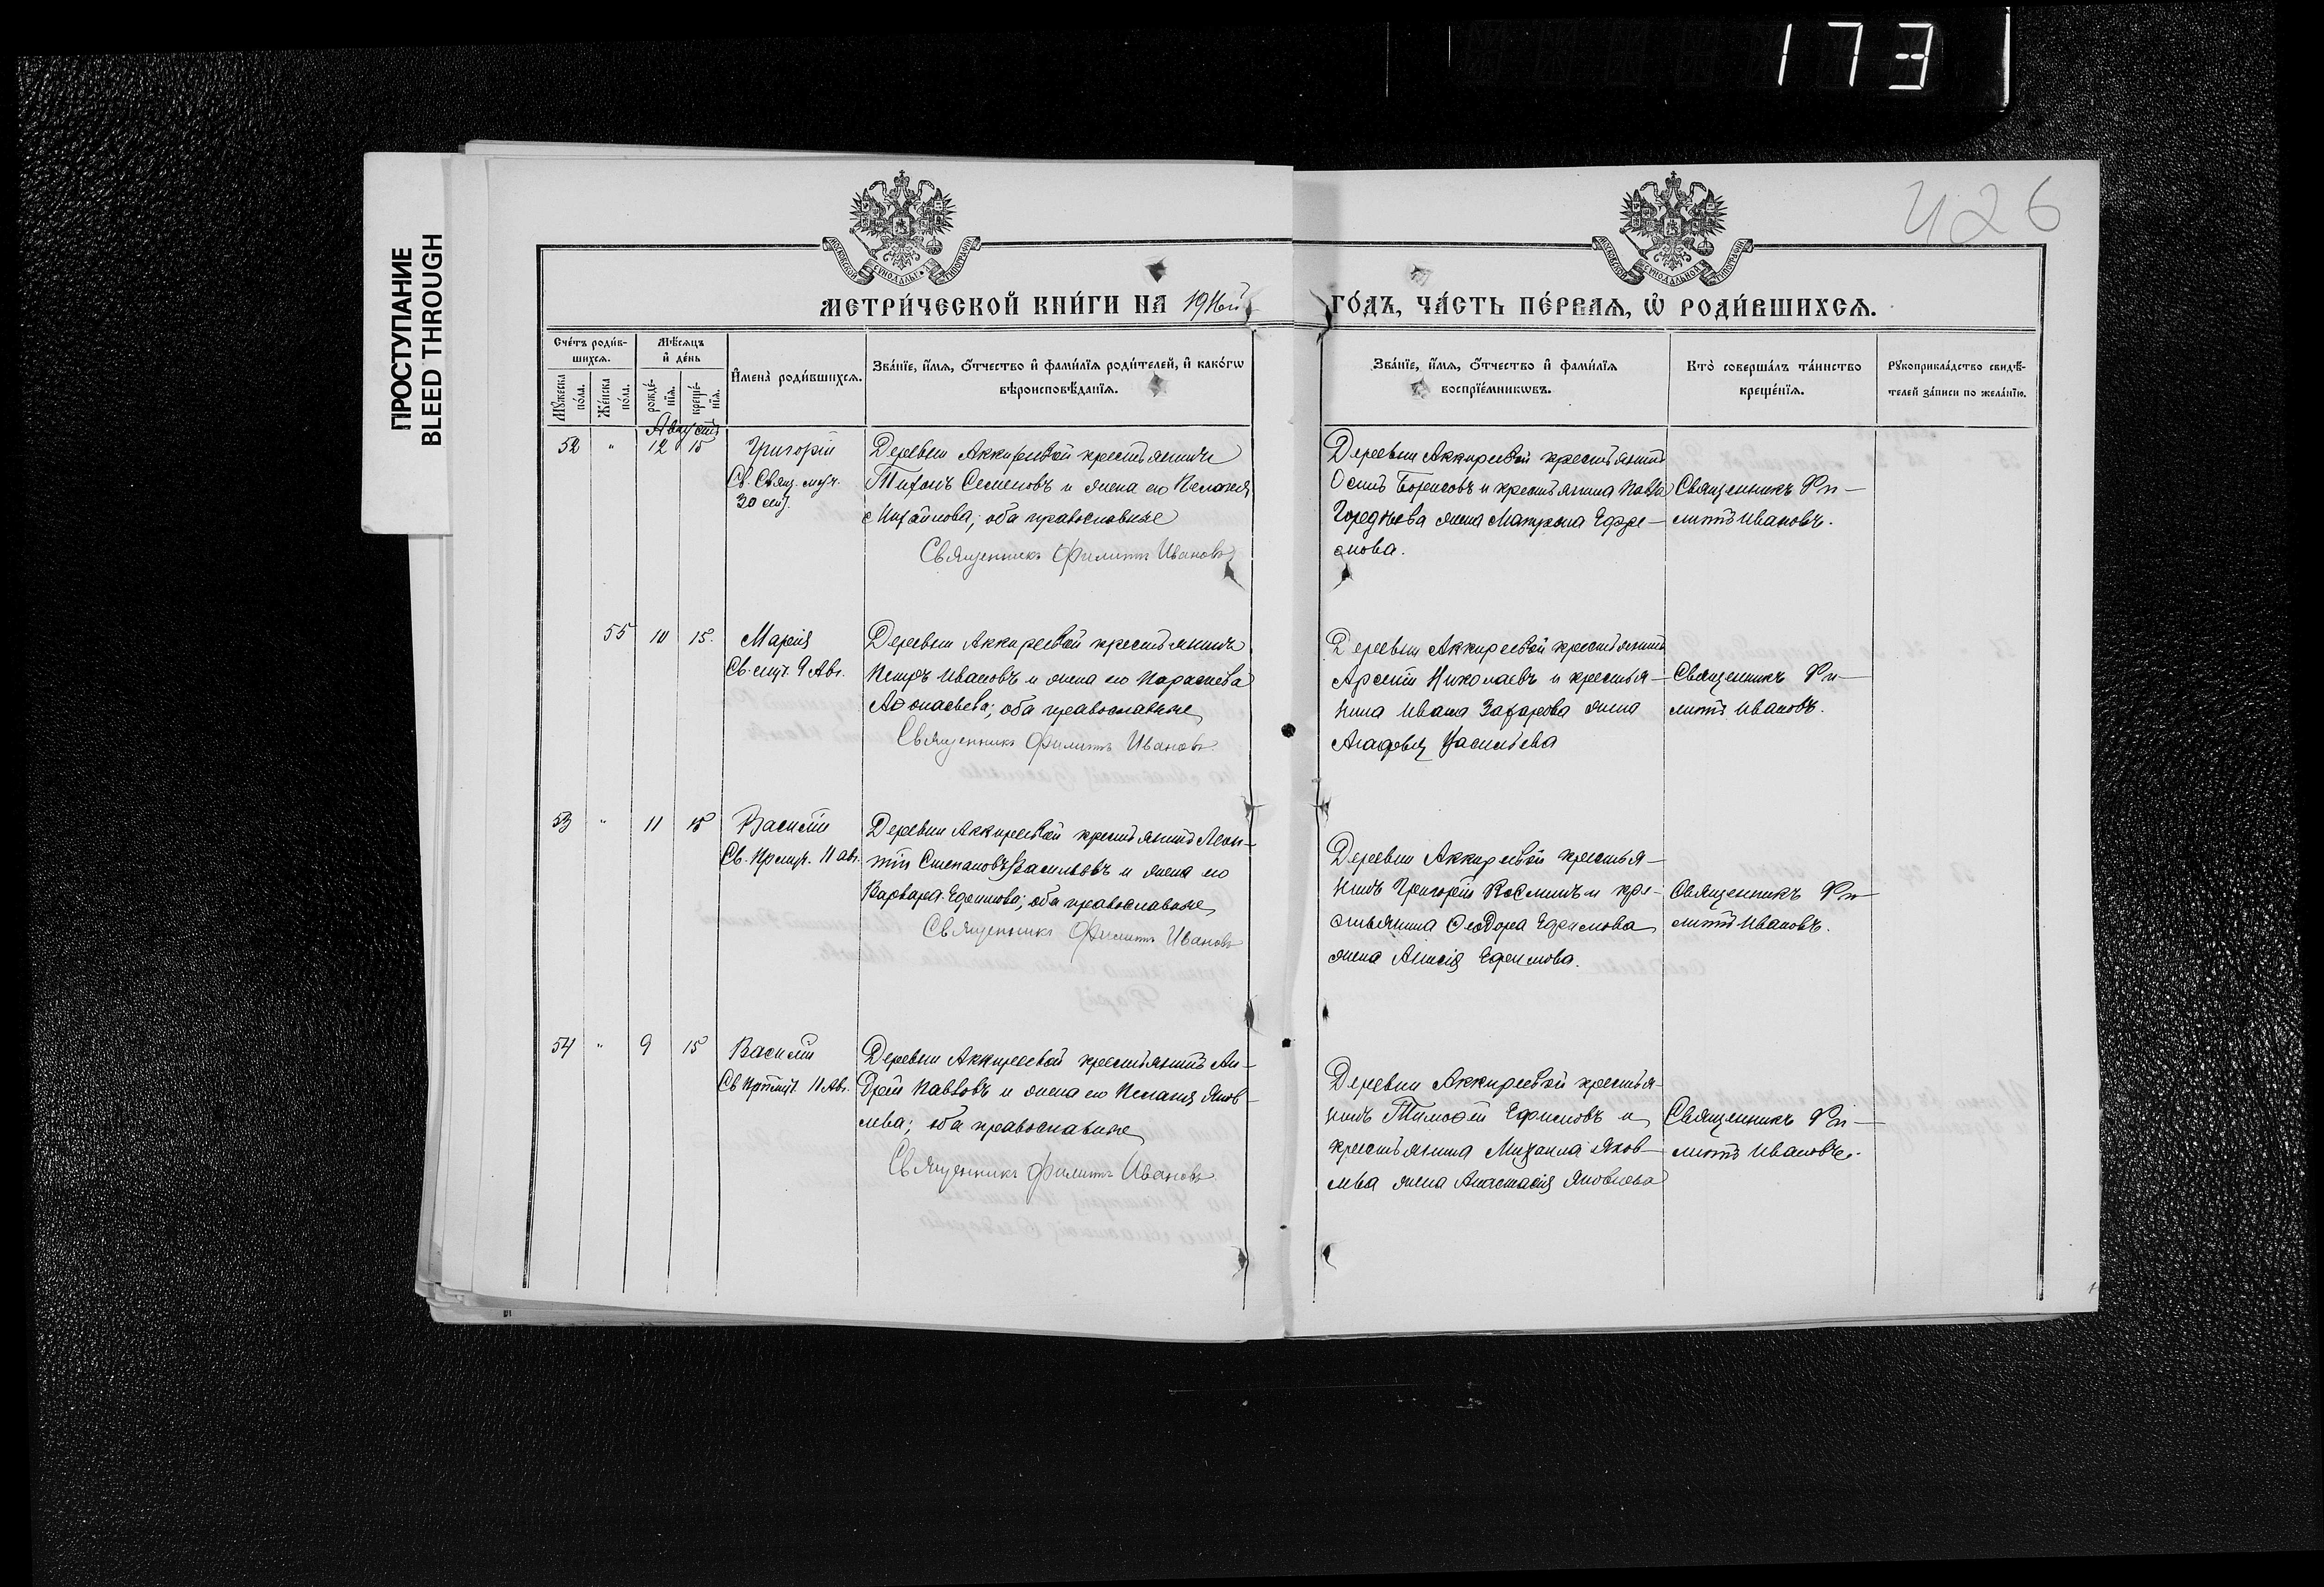 173
ПРОСТУПАНИЕ
BLEED THROUGH
426
МЕТРИ́ЧЕСКОЙ КНИ́ГИ НА 1916й
ГО́ДЪ, ЧА́СТЬ ПЕ́РВАѦ, Ѡ҆ РОДИ́ВШИХСѦ.
Сче́тъ роди́в-
шихсѧ.
Мѣ́сѧцъ
и҆ де́нь
Мꙋ́жеска
по́ла.
Же́нска
по́ла.
рожде́-
нїѧ.
креще́-
нїѧ.
И҆мена̀ роди́вшихсѧ.
Зва́нїе, и҆́мѧ, ѻ҆́тчество и҆ фами́лїѧ роди́телей, и҆ како́гѡ
вѣроисповѣ́данїѧ.
Зва́нїе, и҆́мѧ, ѻ҆́тчество и҆ фами́лїѧ
воспрїе́мникѡвъ.
Кто̀ соверша́лъ та́инство
креще́нїѧ.
Рꙋкоприкла́дство свидѣ́-
телей за́писи по жела́нїю.
Августъ
52 " 12 15 Григорій
Св. Свящ. муч.
30 сент.
Деревни Аккиревой крестьянинъ
Тихонъ Семеновъ и жена его Пелагія
Михаилова; оба православные
Священникъ Филиппъ Ивановъ
Деревни Аккиревой крестьянинъ
Осипъ Борисовъ и крестьянина Павла
Гордѣева жена Матрона Ефре-
мова.
Священникъ Фи-
липпъ Ивановъ.
55 10 15. Марія
Св. муч. 9 Авг.
Деревни Аккиревой крестьянинъ
Петръ Ивановъ и жена его Параскева
Аѳонасьева; оба православные
Священникъ Филиппъ Ивановъ
Деревни Аккиревой крестьянинъ
Арсеній Николаевъ и крестья-
нина Ивана Захарова жена
Агафья Васильева
Священникъ Фи-
липпъ Ивановъ.
53 " 11 15 Василій
Св. Прмуч. 11 авг.
Деревни Аккиревой крестьянинъ Леон-
тій Степановъ Васильевъ и жена его
Варвара Ефимова; оба православные
Священникъ Филиппъ Ивановъ
Деревни Аккиревой крестья-
нинъ Григорій Косминъ и кре-
стьянина Ѳеодора Ефимова
жена Анисія Ефимова.
Священникъ Фи-
липпъ Ивановъ.
54 " 9 15 Василій
Св. Прпмуч. 11 Авг.
Деревни Аккиревой крестьянинъ Ан-
дрей Павловъ и жена его Пелагія Яков-
лева; оба православные
Священникъ Филиппъ Ивановъ
Деревни Аккиревой крестья-
нинъ Тимоѳей Ефимовъ и
крестьянина Михаила Яков-
лева жена Анастасія Яковлева
Священникъ Фи-
липпъ Ивановъ.